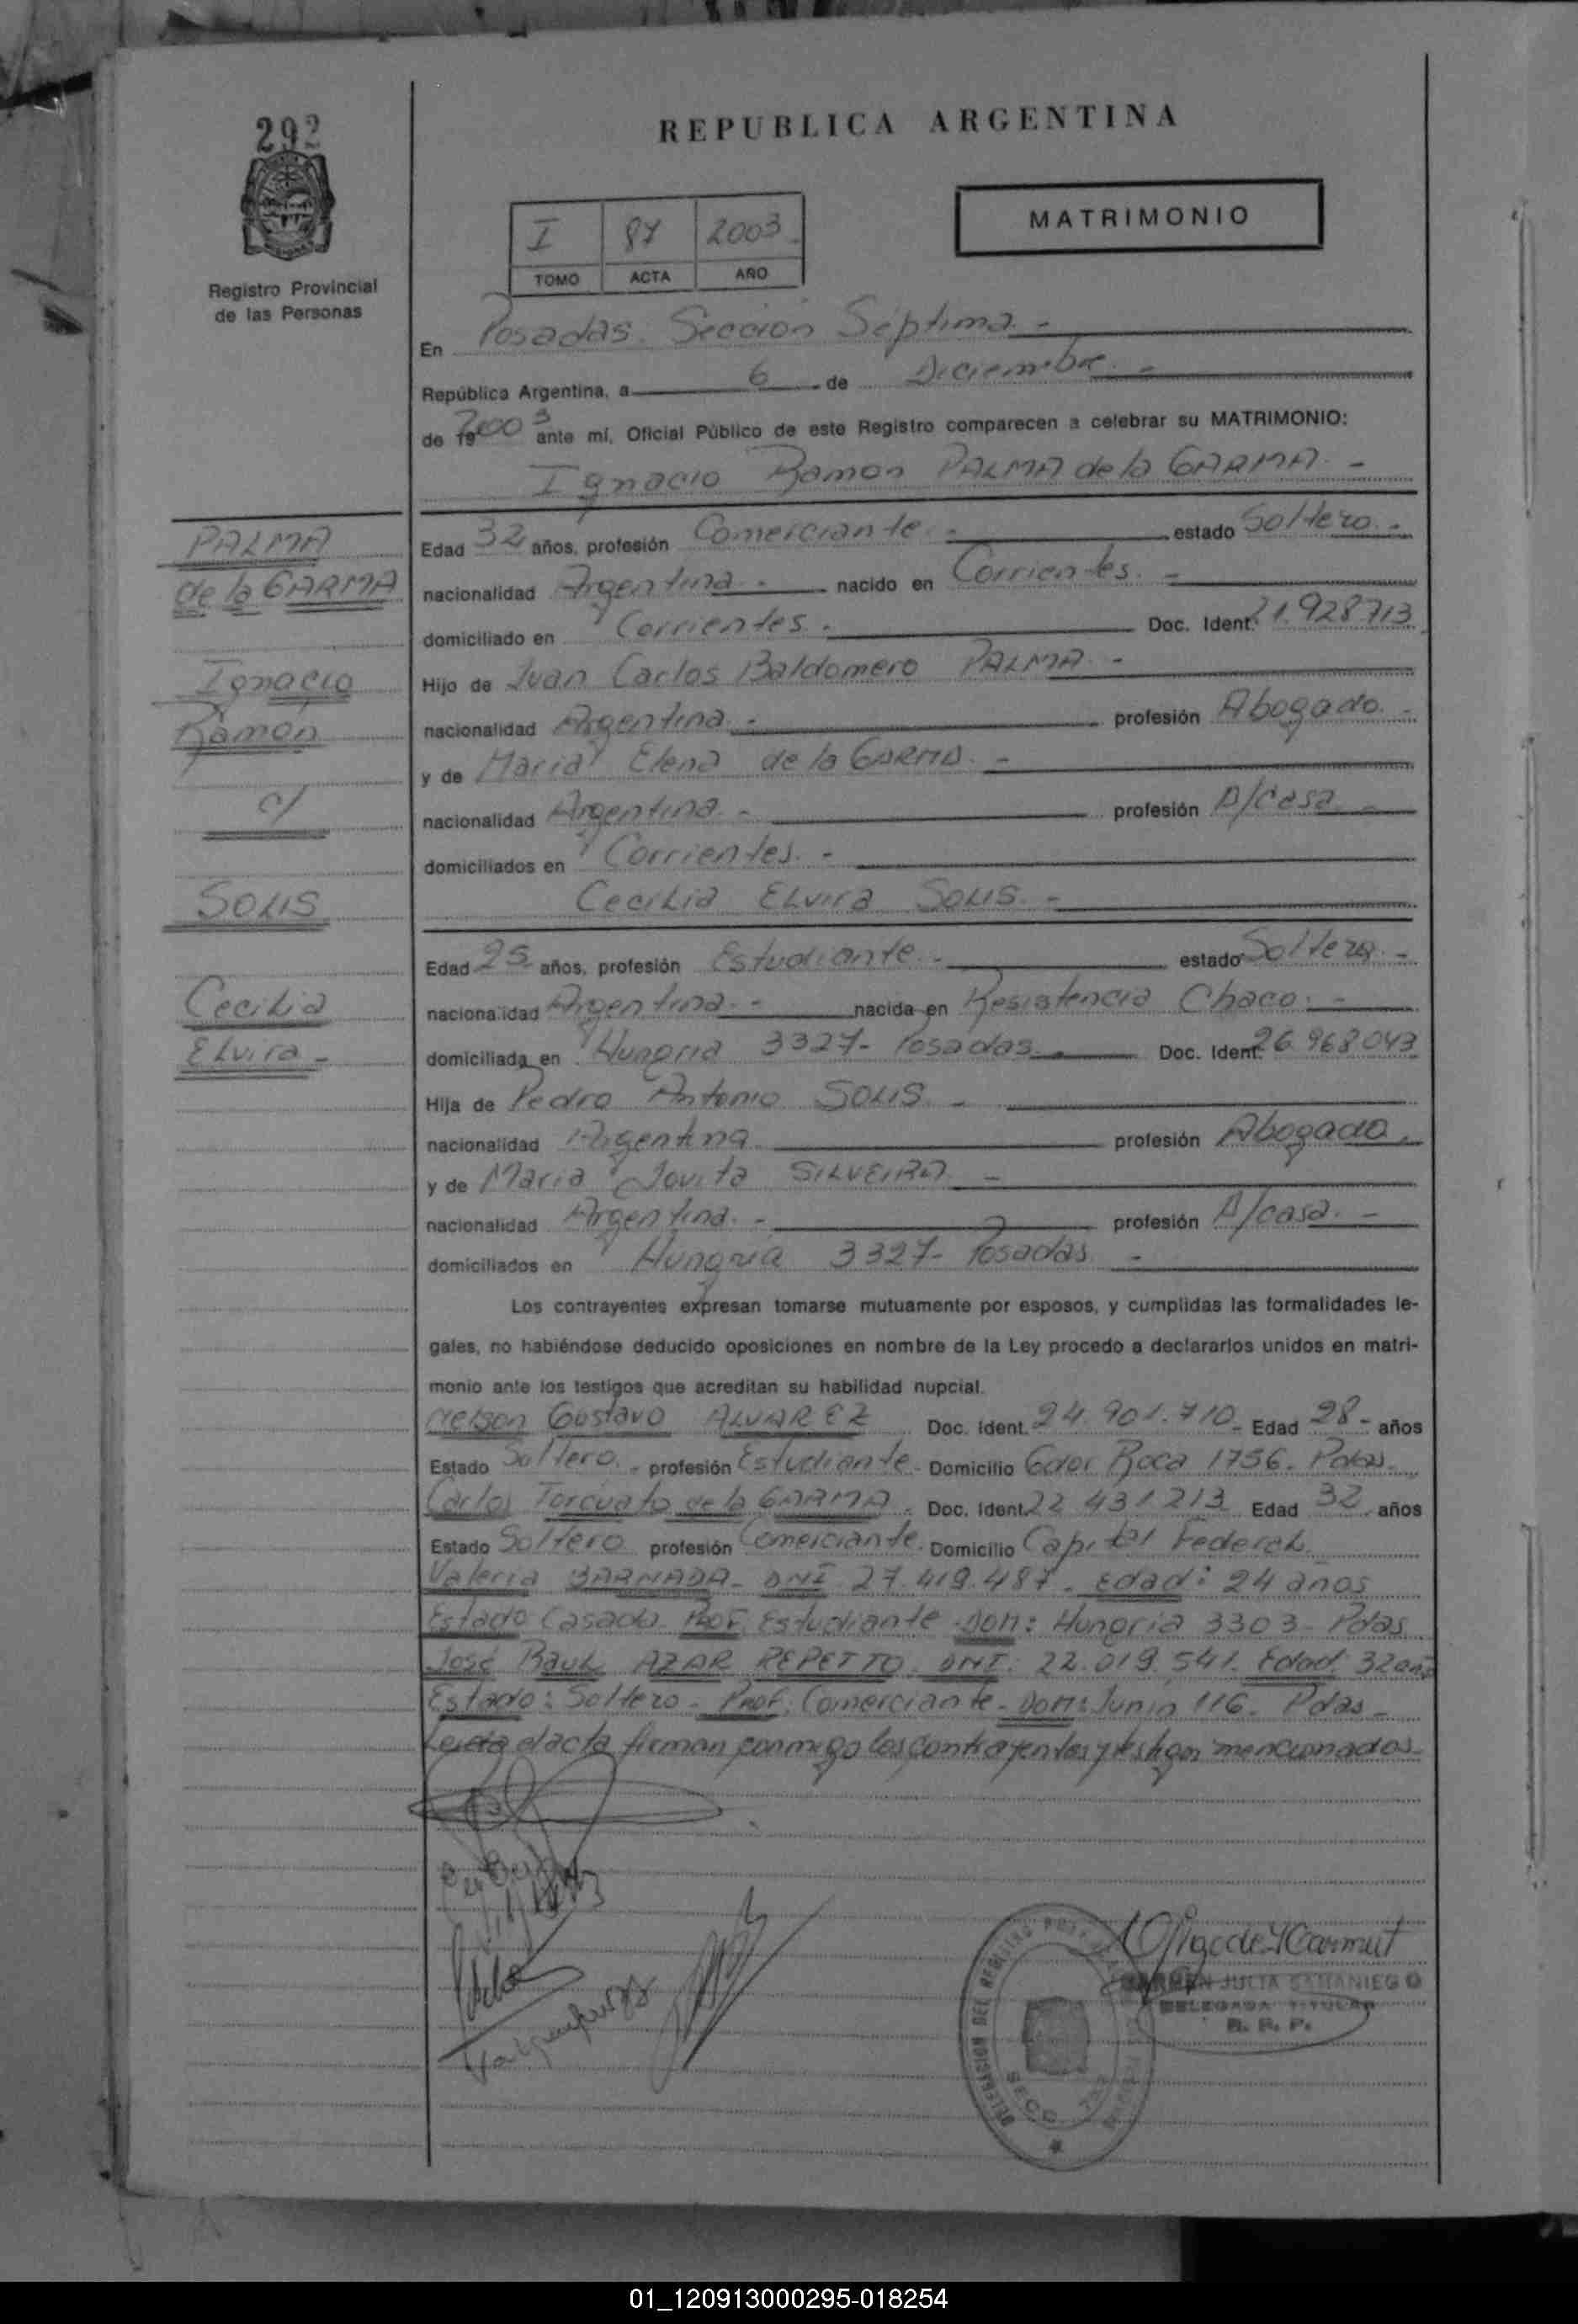 292
REPUBLICA ARGENTINA
MATRIMONIO
I 87 2003
TOMO ACTA AÑO
Registro Provincial
de las Personas
En Posadas. Sección Séptima. -
República Argentina, a 6 de Diciembre. -
de 19 2003 ante mí, Oficial Público de este Registro comparecen a celebrar su MATRIMONIO:
Ignacio Ramon PALMA de la GARMA. -
PALMA
de la GARMA
Ignacio
Ramón
c/
SOLIS
Cecilia
Elvira -
Edad 32 años, profesión Comerciante. - estado Soltero. -
nacionalidad Argentina. - nacido en Corrientes. -
domiciliado en Corrientes. - Doc. Ident. 21.928.713
Hijo de Juan Carlos Baldomero PALMA. -
nacionalidad Argentina. - profesión Abogado. -
y de Maria Elena de la GARMA. -
nacionalidad Argentina. - profesión A/casa. -
domiciliados en Corrientes. -
Cecilia Elvira SOLIS. -
Edad 25 años, profesión Estudiante. - estado Soltera. -
nacionalidad Argentina. - nacida en Resistencia Chaco. -
domiciliada en Hungria 3327- Posadas. Doc. Ident. 26.968.043
Hija de Pedro Antonio SOLIS. -
nacionalidad Argentina profesión Abogado.
y de Maria Jovita SILVEIRA. -
nacionalidad Argentina. - profesión A/casa. -
domiciliados en Hungria 3327- Posadas -
Los contrayentes expresan tomarse mutuamente por esposos, y cumplidas las formalidades le-
gales, no habiéndose deducido oposiciones en nombre de la Ley procedo a declararlos unidos en matri-
monio ante los testigos que acreditan su habilidad nupcial.
Nelson Gustavo ALVAREZ Doc. Ident. 24.901.710- Edad 28- años
Estado Soltero. - profesión Estudiante - Domicilio Gdor Roca 1756. Pdas.
Carlos Torcuato de la GARMA. Doc. Ident. 22 431 213 Edad 32 años
Estado Soltero profesión Comerciante. Domicilio Capital Federal.
Valeria BARNADA- DNI 27.419.487- Edad: 24 años
Estado Casada. Prof. Estudiante -Dom: Hungria 3303- Pdas
José Raul AZAR REPETTO. DNI: 22.019.541. Edad: 32 años
Estado: Soltero - Prof: Comerciante - Dom: Junin 116. Pdas -
Leida el acta firman conmigo los contrayentes y testigos mencionados.
DELEGACION DEL REGISTRO
SECC
CARMEN JULIA SAMANIEGO
DELEGADA TITULAR
R. P. P.
01_120913000295-018254